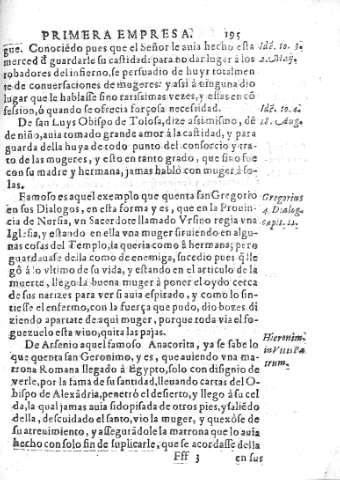 PRIMERA EMPRESA. 195
gue. Conociédo pues que el Señor le auia hecho esta
merced đ guardarle su castidad: para no dar lugar à los
robadores del infierno, se persuadio de huyr totalmen
te de conuersaciones de mugeres: y asi à ninguna dio
lugar que le hablasse sino rarissimas vezes, y estas en cō
fession, ò quando se ofrecia forçosa necessidad.
De san Luys Obispo de Tolosa, dize assimismo, đ
de niño, auia tomado grande amor à la castidad, y para
guarda della huya de todo punto del consorcio y tra-
to de las mugeres, y esto en tanto grado, que sino fue
con su madre y hermana, jamas hablò con muger à so-
las.
Famoso es aquel exemplo que quenta san Gregorio
en sus Dialogos, en esta forma y es, que en la Prouin
cia de Nursia, vn Sacerdote llamado Vrsino regia vna
Iglesia, y estando en ella vna muger siruiendo en algu-
nas cosas del Templo, la queria como à hermana; pero
guardauase della como de enemiga, sucedio pues q̃ lle
gó à lo vltimo de su vida, y estando en el articulo de la
muerte, llego la buena muger à poner el oydo cerca
de sus narizes para ver si auia espirado, y como lo sin-
tiesse el enfermo, con la fuerça que pudo, dio bozes di
ziendo apartate de aqui muger, porque toda via el fo-
guezuelo esta viuo, quita las pajas.
De Arsenio aquel famoso Anacorita, ya se sabe lo
que quenta san Geronimo, y es, que auiendo vna ma-
trona Romana llegado à Egypto, solo con disignio de
verle, por la fama de su santidad, lleuando cartas del O-
bispo de Alexãdria, penetrò el desierto, y llegò à su cel
da, la qual jamas auia sido pisada de otros pies, y saliédo
della, descuidado el santo, vio la muger, y quexòse de
su atreuimiento, y assegurãdole la matrona que lo auia
hecho con solo fin de suplicarle, que se acordasse della
Fff 3 en sus
Idē. 10. 3.
2. May.
Idē. to. 4.
18. Aug.
Gregorius
4. Dialog.
cap. 11.
Hieronim.
in Vitis Pa
trum.